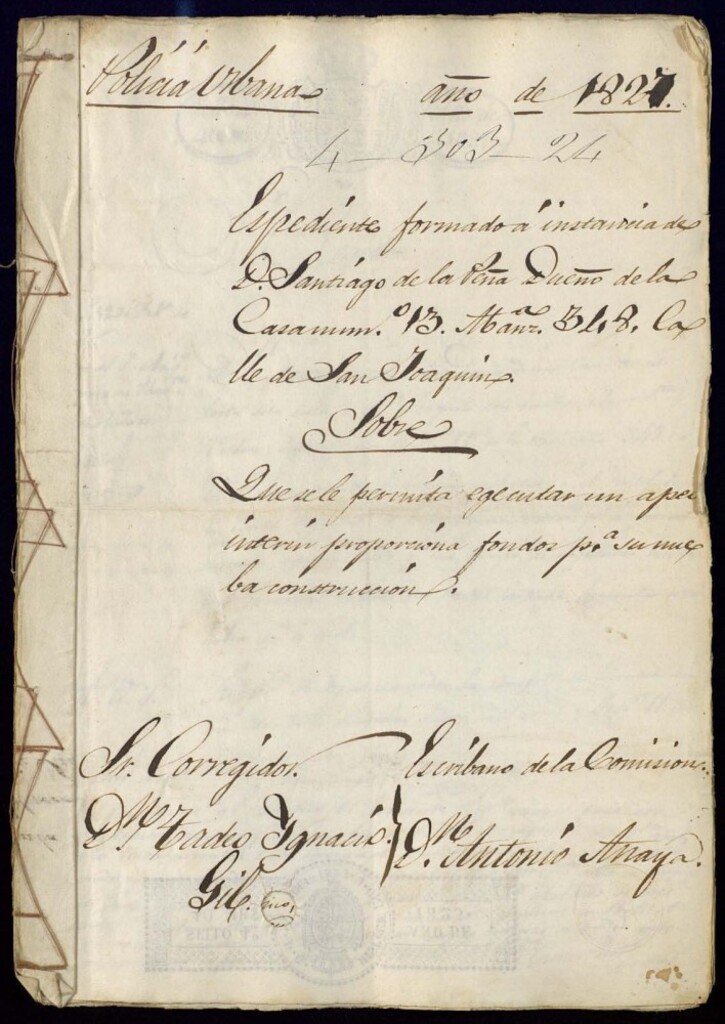 Policía Urbana año de 1827.
4-303-24
Espediente formado á instancia de
D. Santiago de la Peña Dueño de la
Casa num.º 13. Manz.ª 318. Ca
lle de San Joaquin.
Sobre
Que se le permita egecutar un apeo
interin proporciona fondos p.ª su nue
ba construcción.
Sr. Corregidor.
Escribano de la Comision.
D.n Tadeo Ygnacio
Gil.
D.n Antonio Anaya.
SELLO 4º
AÑO DE